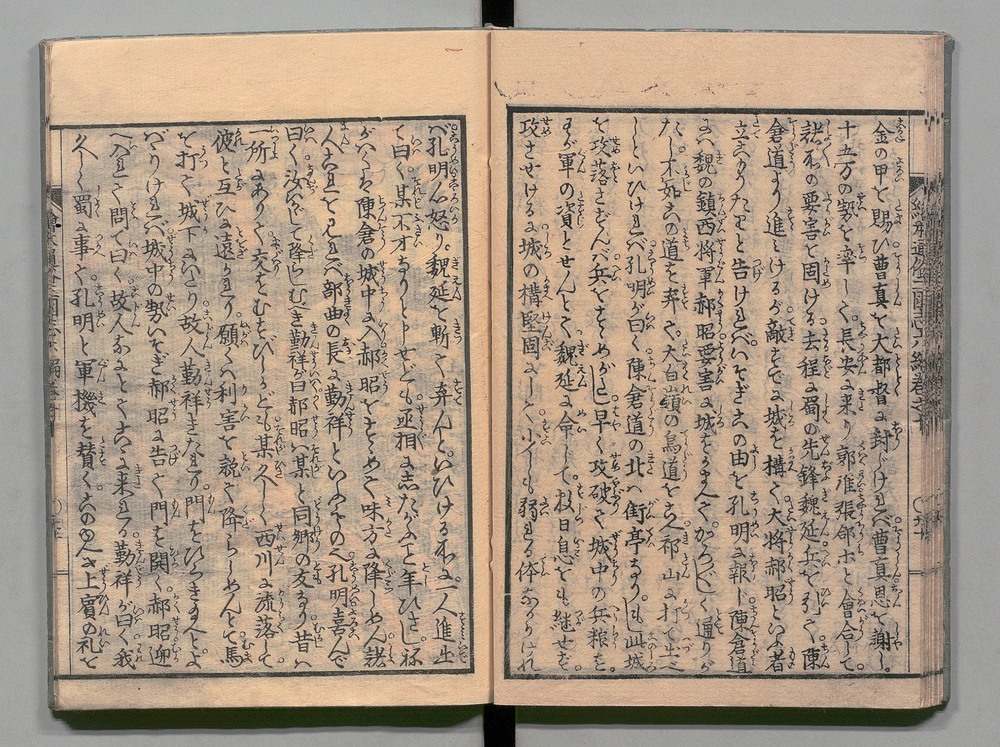 金の甲を賜ひ曹真を大都督に封じければ曹真恩を謝し。
十五万の勢を率して。長安に来り郭淮張郃ホと會合して。
諸所の要害を固ける。去程に蜀の先鋒魏延兵を引て。陳
倉道より進みけるが敵すでに城を構て大将郝昭といふ者
立こもりたりと告ければいそぎ此由を孔明に報じ陳倉道
には魏の鎮西将軍郝昭要害に城をかまへて。かろ〴〵しく通りが
たし不如此道を弃て。大白山嶺の鳥道をこえ祁山に打て出ニ
しといひければ孔明が曰く陳倉道の北ハ街亭なり。もし此城
を攻落さずんバ兵をすゝめがたし早く攻破て。城中の兵粮を。
わが軍の資とせんとて。魏延に命じて数日息をも継せず。
攻させけるに城の構堅固にして。少しも弱れる体なかりけれ
バ孔明大に怒り。魏延を斬て弃んと。いひける所に。一人進出
て曰く。某不才なりと申せども。丞相に志たがふこと年ひさし。
ねがはくは陳倉の城中に入郝昭をすゝめて味方に降しめん諸
人これをミれバ部曲の長に勤祥といふもの也孔明喜んで
曰く。汝いかにして降らしむべき勤祥が曰郝昭ハ某と同郷の友なり昔ハ
一所にありて交をむすびしかども某久しく西川に流落して
彼と互ひに遠ざかれり願くハ利害を説て降らしめんとて馬
を打て。城下にいたり故人勤祥きたれり門をひらき給へとよ
ばりければ城中の勢いそぎ郝昭に告て。門を開く。郝昭迎
へ入れて問て曰く故人なにとてこゝに来れる勤祥が曰く我
久しく蜀に事て。孔明と軍機を賛く。上賓の礼を